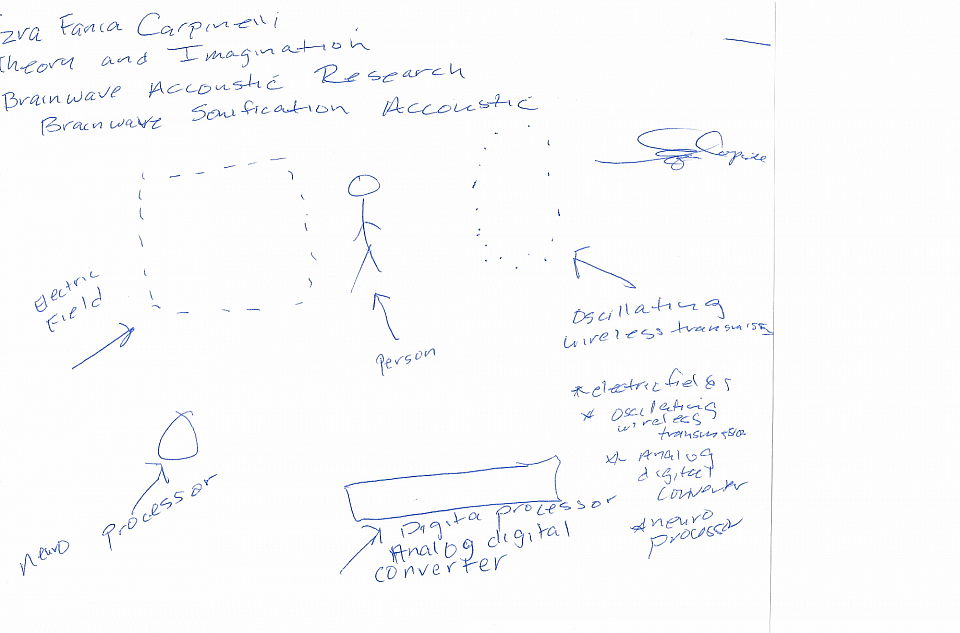 Ezra Fanca Carpinelli
Theory and Imagination
Brainwave Accoustic Research
Brainwave Sonification Accoustic
Electric
Field
Person
Oscillating
wireless transmiss
* electric fields
* oscilating
wireless
transmission
* Analog
digital
converter
* neuro
processor
neuro processor
Digita processor
Analog digital
converter